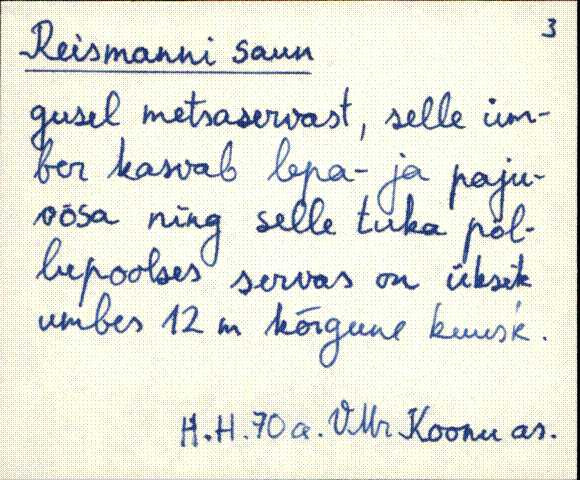 3
Reismanni saun
gusel metsaservast, selle üm-
ber kasvab lepa- ja paju-
võsa ning selle tuka põl-
lupoolses servas on üksik
umbes 12 m kõrgune kuusk.
H.H. 70 a. VMr Koonu as.